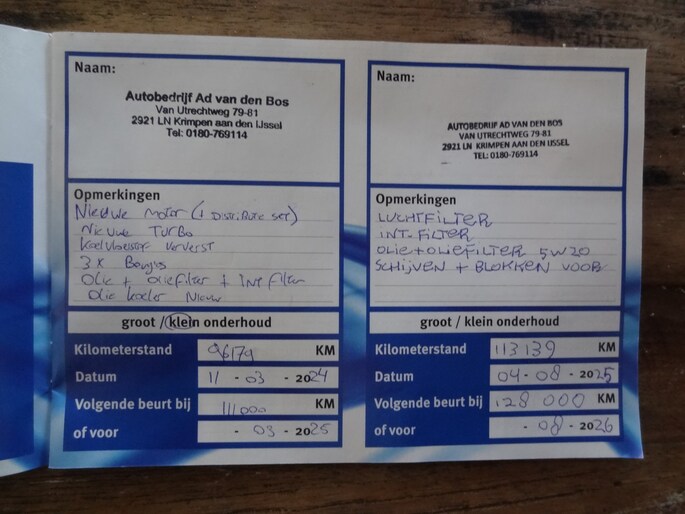 Naam:
Autobedrijf Ad van den Bos
Van Utrechtweg 79-81
2921 LN Krimpen aan den IJssel
Tel: 0180-769114
Opmerkingen
Nieuwe motor (+ Distributie set)
Nieuwe Turbo
Koelvloeistof ververst
3 x Bougies
Olie + oliefilter + Int filter
Olie koeler Nieuw
groot / klein onderhoud
Kilometerstand 96179 KM
Datum 11 - 03 - 2024
Volgende beurt bij 111000 KM
of voor - 03 - 2025
Naam:
AUTOBEDRIJF AD VAN DEN BOS
VAN UTRECHTWEG 79-81
2921 LN KRIMPEN AAN DEN IJSSEL
TEL: 0180-769114
Opmerkingen
LUCHTFILTER
INT-FILTER
OLIE+OLIEFILTER 5W20
SCHIJVEN + BLOKKEN VOOR
groot / klein onderhoud
Kilometerstand 113139 KM
Datum 04 - 08 - 2025
Volgende beurt bij 128 000 KM
of voor - 08 - 2026